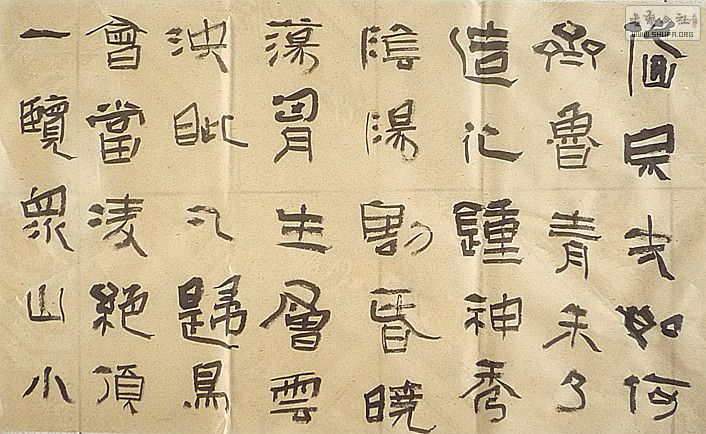 岱宗夫如何
齊魯青未了
造化鐘神秀
陰陽割昏曉
蕩胸生層雲
決眦入歸鳥
會當凌絕頂
一覽眾山小
WWW.SHUFA.ORG